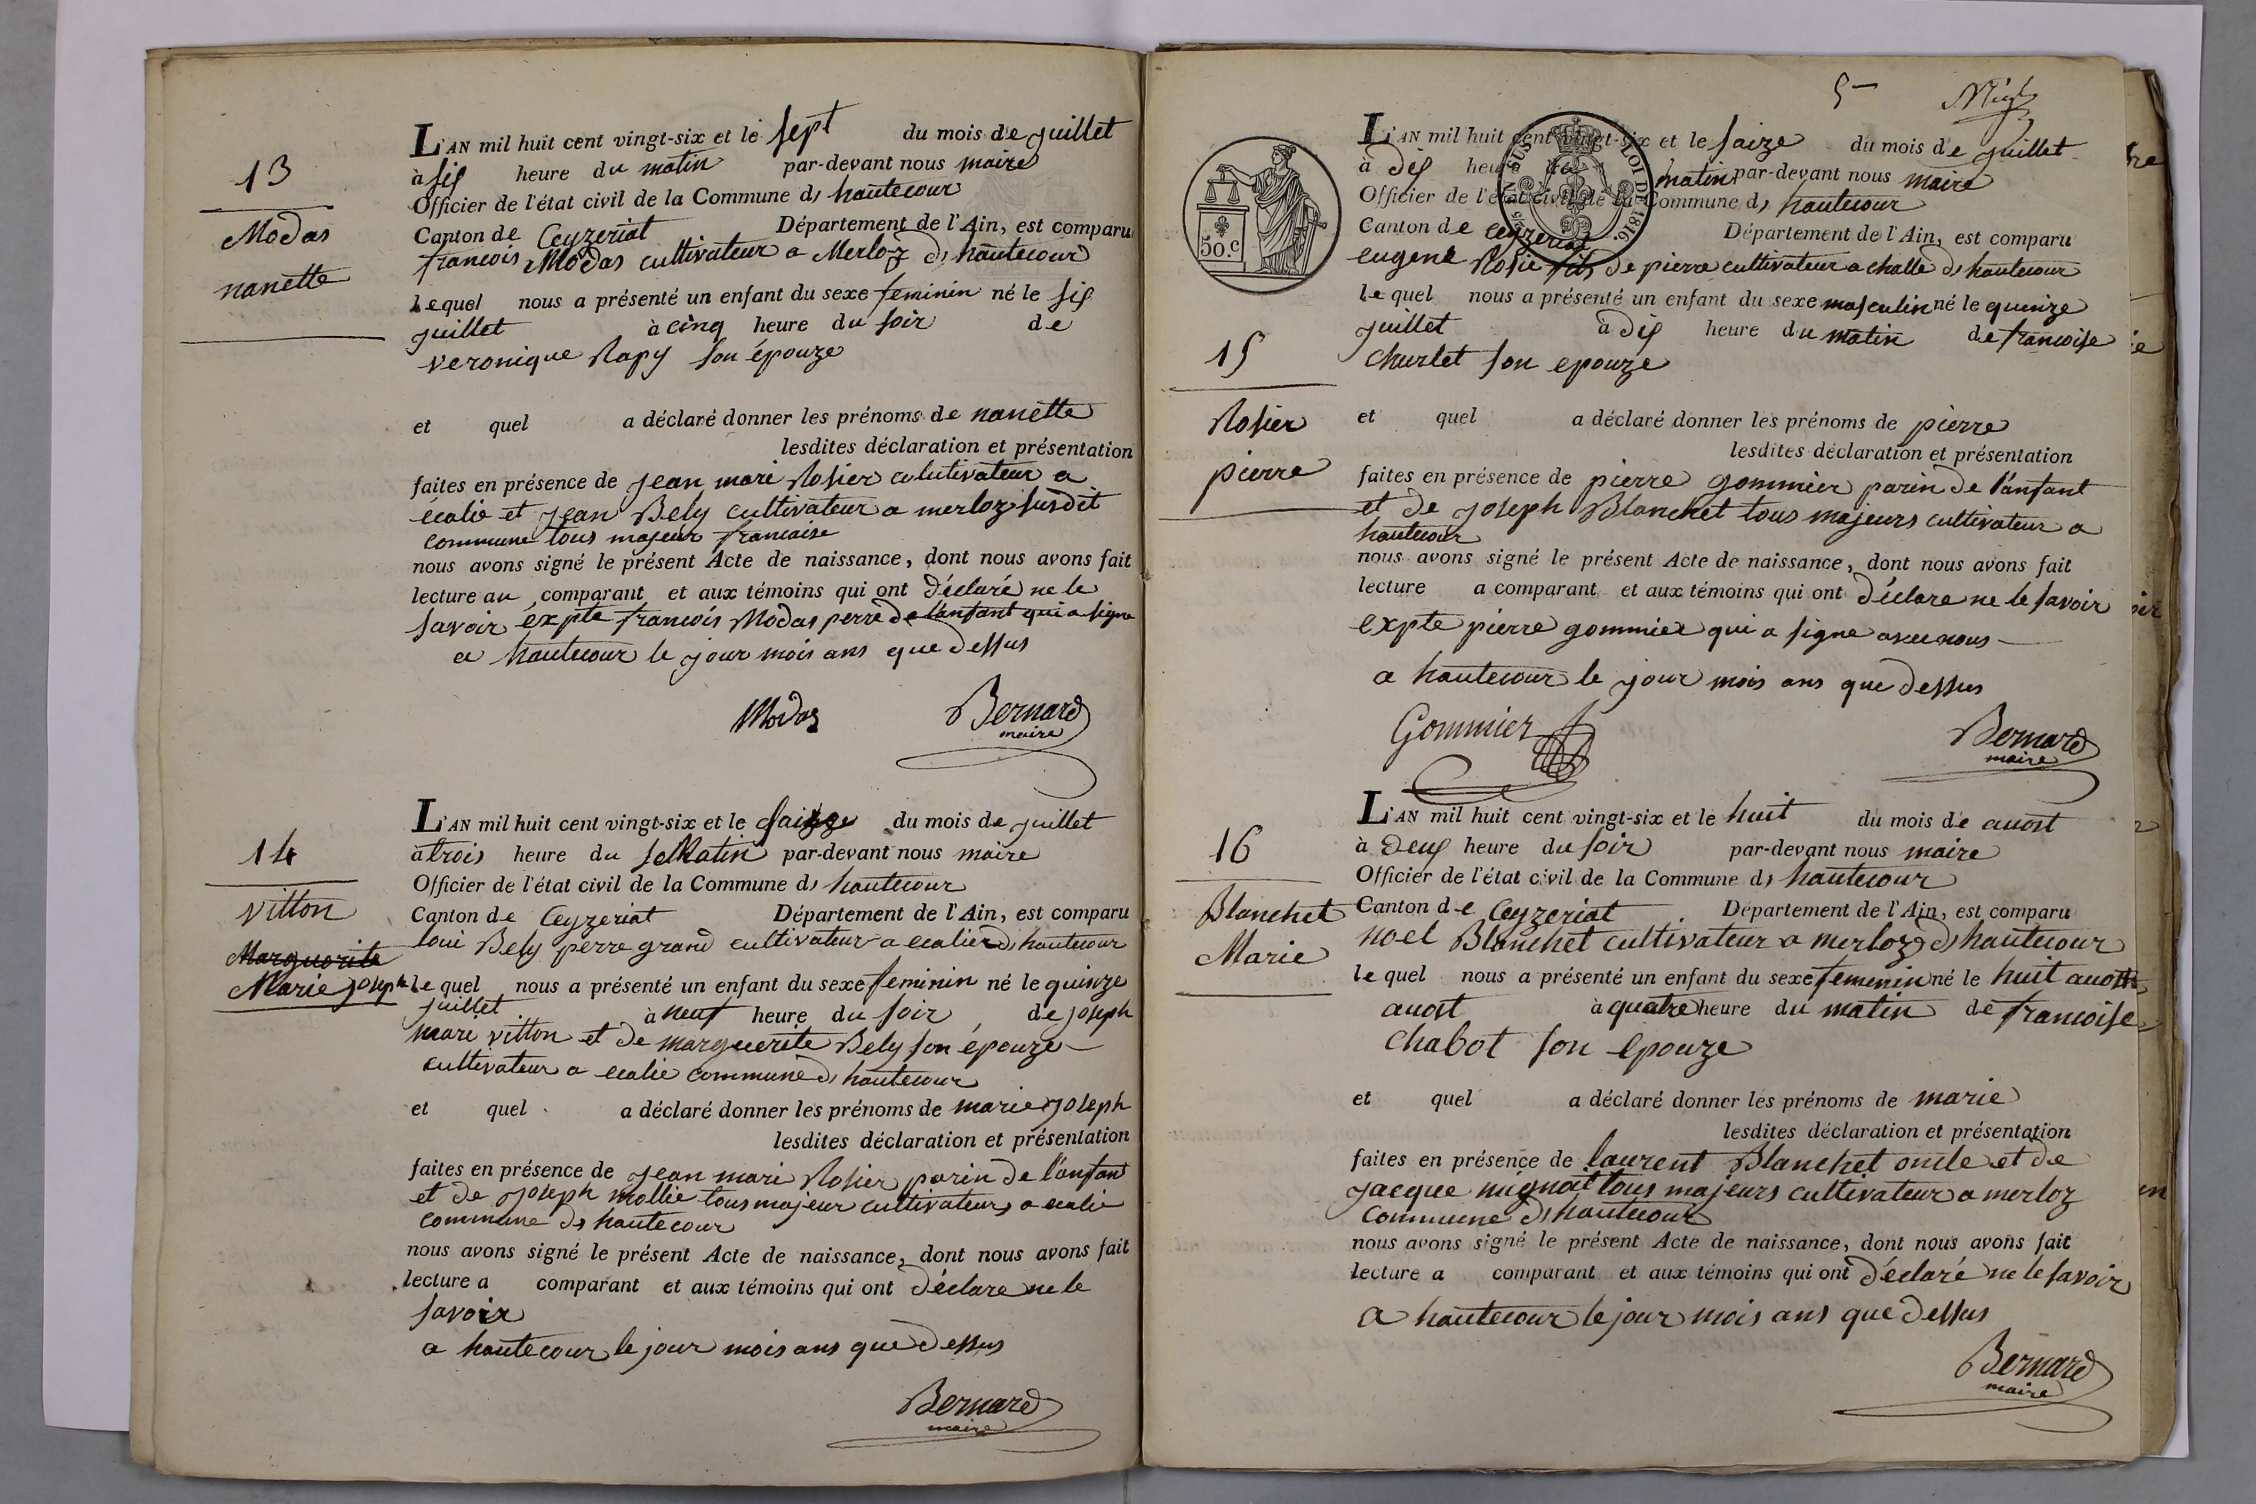 13
Modas
nanette
L'AN mil huit cent vingt-six et le sept du mois de juillet
à six heure du matin par-devant nous maire
Officier de l'état civil de la Commune d, hautecour
Canton de Ceyzeriat Département de l'Ain, est comparu
francois Modas cultivateur a Merloz d, hautecour
lequel nous a présenté un enfant du sexe feminin né le six
juillet à cinq heure du soir de
veronique Rapy son épouze
et quel a déclaré donner les prénoms de nanette
lesdites déclaration et présentation
faites en présence de jean mari Rosier culutivateur a
ecalie et jean Bely cultivateur a merloz susdit
commune tous majeur francaise
nous avons signé le présent Acte de naissance, dont nous avons fait
lecture au comparant et aux témoins qui ont déclaré ne le
savoir expte francois Modas perre de l'anfant qui a signe
a hautecour le jour mois ans que dessus
Modas Bernard
maire
14
vitton
Marguerite
Marie joseph
L'AN mil huit cent vingt-six et le saizze du mois de juillet
à trois heure du Matin par-devant nous maire
Officier de l'état civil de la Commune d, hautecour
Canton de Ceyzeriat Département de l'Ain, est comparu
loui Bely perre grand cultivateur a ecalier d, hautecour
lequel nous a présenté un enfant du sexe feminin né le quinze
juillet à neuf heure du soir de joseph
mari vitton et de marguerite Bely son épouze
cultivateur a ecalie commune d, hautecour
et quel a déclaré donner les prénoms de marie joseph
lesdites déclaration et présentation
faites en présence de jean mari Rosier parin de l'anfant
et de joseph mollie tous majeur cultivateurs a ecalie
commune d, hautecour
nous avons signé le présent Acte de naissance, dont nous avons fait
lecture a comparant et aux témoins qui ont déclare ne le
savoir
a hautecour le jour mois ans que dessus
Bernard
maire
5
50.C
TIMB. EN SUS
LOI DE 1816
15
Rosier
pierre
L'AN mil huit cent vingt-six et le saize du mois de juillet
à dix heure du matin par-devant nous maire
Officier de l'état civil de la Commune d, hautecour
Canton de Ceyzeriat Département de l'Ain, est comparu
eugene Rosie fils de pierre cultivateur a challe d, hautecour
le quel nous a présenté un enfant du sexe masculin né le quinze
juillet à dix heure du matin de francoise
churlet son epouze
et quel a déclaré donner les prénoms de pierre
lesdites déclaration et présentation
faites en présence de pierre gommier parin de l'anfant
et de joseph Blanchet tous majeurs cultivateur a
hautecour
nous avons signé le présent Acte de naissance, dont nous avons fait
lecture a comparant et aux témoins qui ont déclare ne le savoir
expte pierre gommier qui a signe avec nous
a hautecour le jour mois ans que dessus
Gommier Bernard
maire
16
Blanchet
Marie
L'AN mil huit cent vingt-six et le huit du mois de auost
à deux heure du soir par-devant nous maire
Officier de l'état civil de la Commune d, hautecour
Canton de Ceyzeriat Département de l'Ain, est comparu
noel Blanchet cultivateur a merloz d, hautecour
le quel nous a présenté un enfant du sexe femenin né le huit auost
auost à quatre heure du matin de francoise
chabot son epouze
et quel a déclaré donner les prénoms de marie
lesdites déclaration et présentation
faites en présence de laurent Blanchet oncle et de
jacque mignoit tous majeurs cultivateur a merloz
commune d, hautecour
nous avons signé le présent Acte de naissance, dont nous avons fait
lecture a comparant et aux témoins qui ont déclaré ne le savoir
a hautecour le jour mois ans que dessus
Bernard
maire